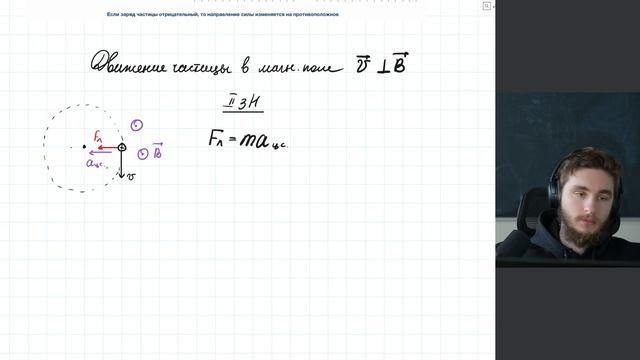 Если заряд частицы отрицательный, то направление силы изменяется на противоположное
Движение частицы в магн. поле v⃗ ⊥ B⃗
II з Н
Fл = maц.с.
Fл
B⃗
aц.с.
v